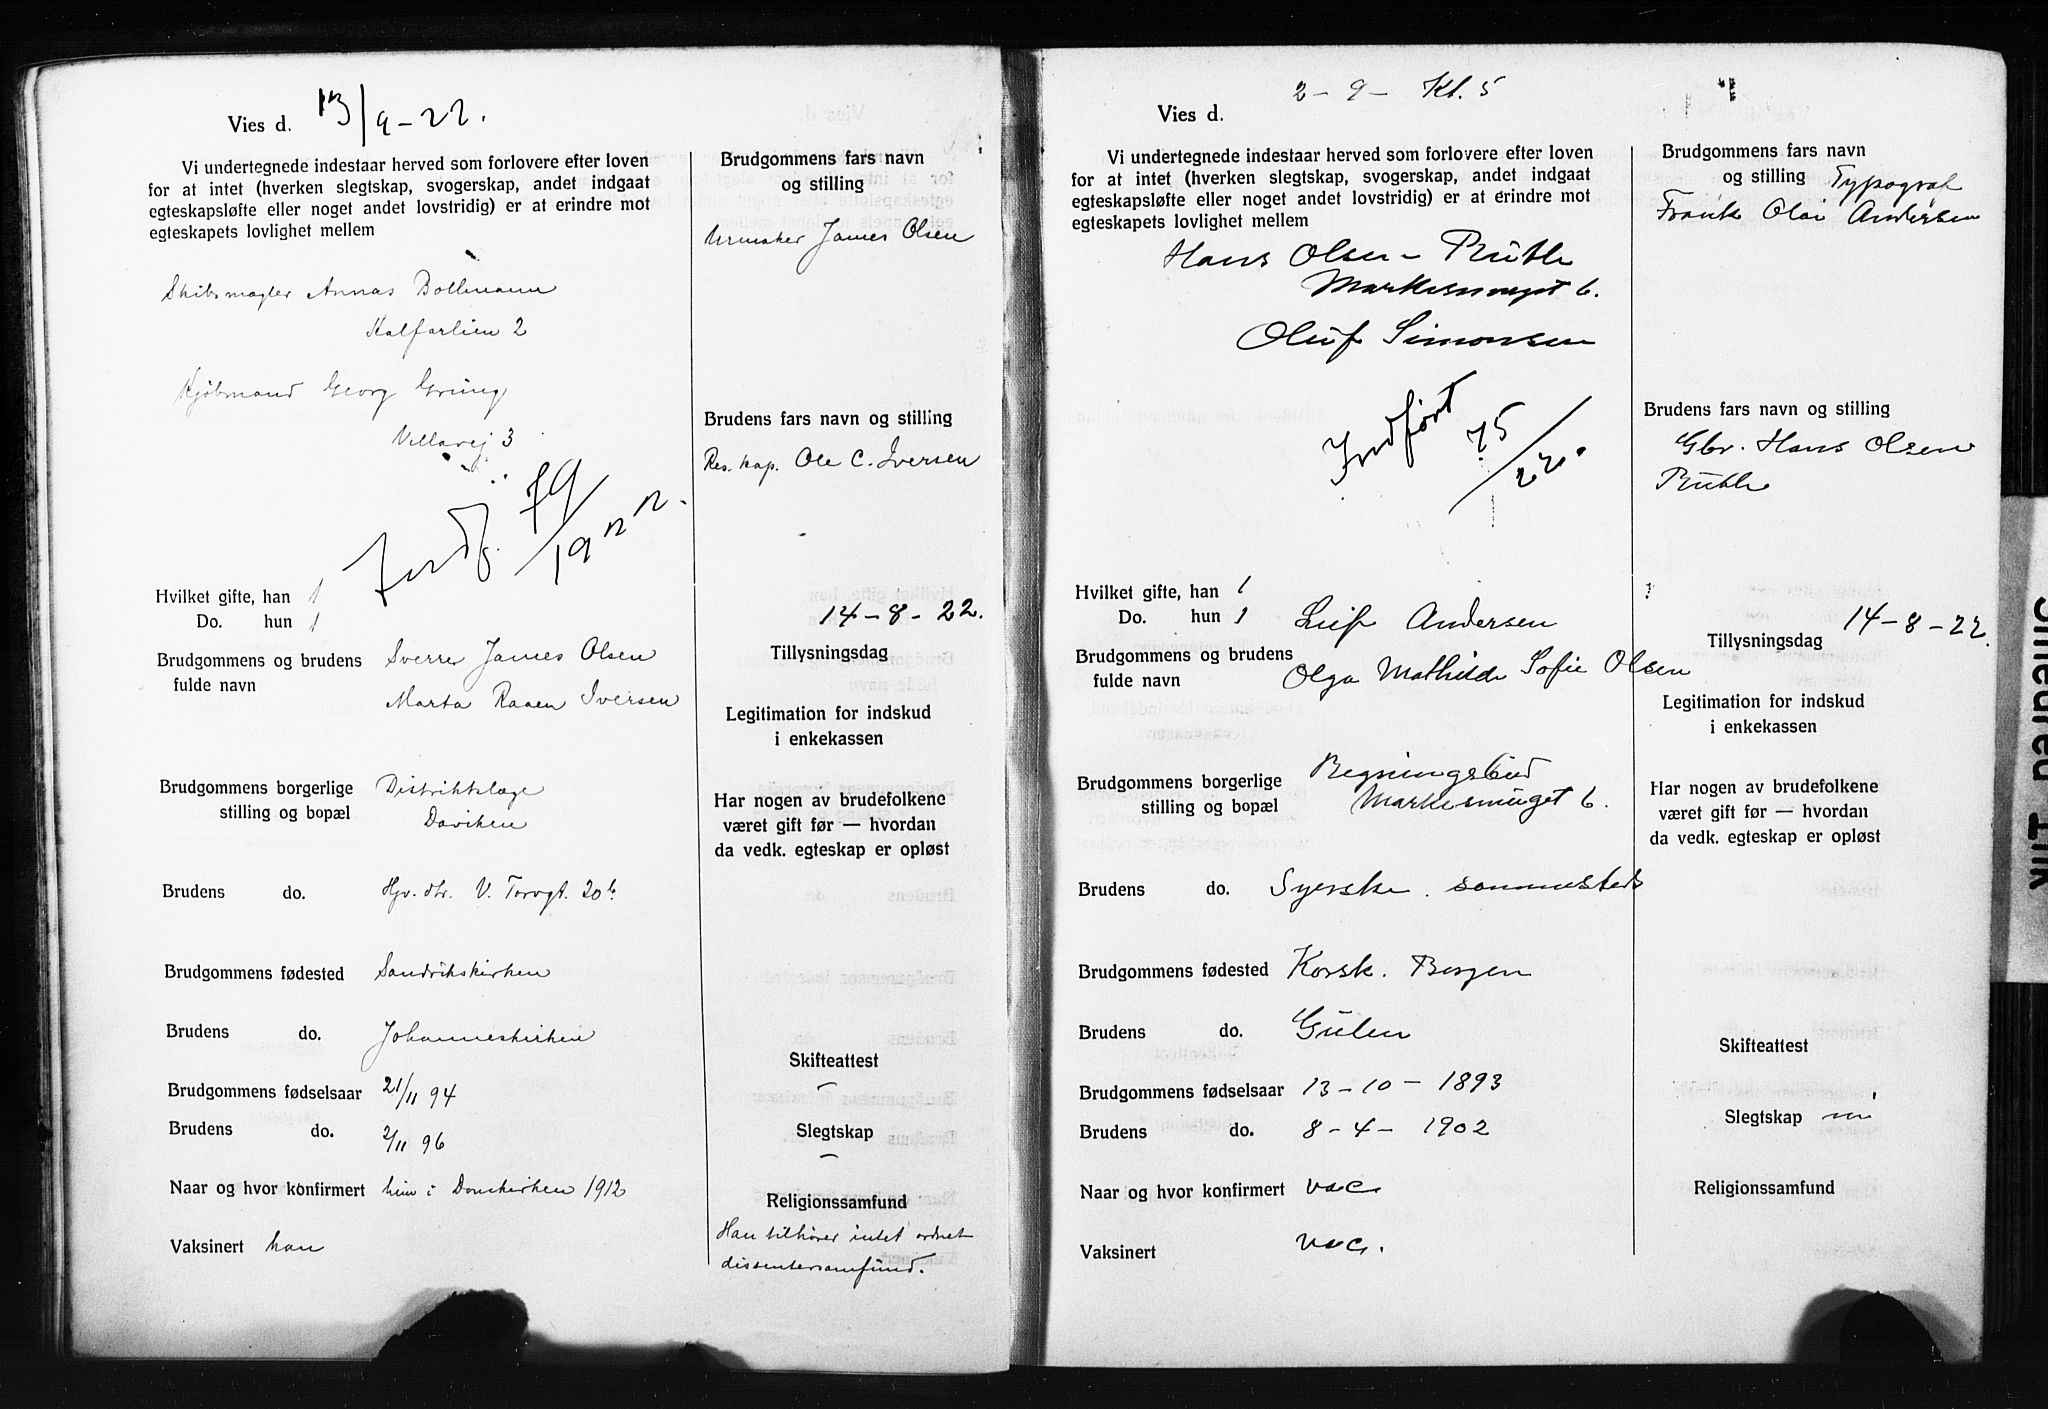 Vies d. 13/9-22.
Vi undertegnede indestaar herved som forlovere efter loven
for at intet (hverken slegtskap, svogerskap, andet indgaat
egteskapsløfte eller noget andet lovstridig) er at erindre mot
egteskapets lovlighet mellem
Skibsmægler Annas Bollmann
Kalfarlien 2
Kjøbmand Georg Grung
Villavej 3
Indf. 79/1922.
Hvilket gifte, han 1
Do. hun 1
Brudgommens og brudens
fulde navn
Sverre James Olsen
Marta Raaen Iversen
Brudgommens borgerlige
stilling og bopæl
Distriktslæge
Daviken
Brudens do. Hjv. dtr. V. Torvgt. 20b
Brudgommens fødested Sandvikskirken
Brudens do. Johanneskirken
Brudgommens fødselsaar 21/11 94
Brudens do. 2/11 96
Naar og hvor konfirmert hun i Domkirken 1912
Vaksinert han
Brudgommens fars navn
og stilling
Urmaker James Olsen
Brudens fars navn og stilling
Res. kap. Ole C. Iversen
14-8-22.
Tillysningsdag
Legitimation for indskud
i enkekassen
Har nogen av brudefolkene
været gift før — hvordan
da vedk. egteskap er opløst
Skifteattest
–
Slegtskap
–
Religionssamfund
Han tilhører intet ordnet
dissentersamfund.
2-9- Kl. 5
Vies d.
Vi undertegnede indestaar herved som forlovere efter loven
for at intet (hverken slegtskap, svogerskap, andet indgaat
egteskapsløfte eller noget andet lovstridig) er at erindre mot
egteskapets lovlighet mellem
Hans Olsen-Rutle
Markesmuget 6.
Oluf Simonsen
Indført 75/22.
Hvilket gifte, han 1
Do. hun 1
Brudgommens og brudens
fulde navn
Leif Andersen
Olga Mathilde Sofie Olsen
Brudgommens borgerlige
stilling og bopæl
Regningsbud
Markesmuget 6.
Brudens do. Syerske. sammesteds
Brudgommens fødested Korsk. Bergen
Brudens do. Gulen
Brudgommens fødselsaar 13-10-1893
Brudens do. 8-4-1902
Naar og hvor konfirmert vac
Vaksinert vac.
Brudgommens fars navn
og stilling Typograf
Frank Olai Andersen
Brudens fars navn og stilling
Gbr. Hans Olsen
Rutle
14-8-22.
Tillysningsdag
Legitimation for indskud
i enkekassen
Har nogen av brudefolkene
været gift før — hvordan
da vedk. egteskap er opløst
Skifteattest
Slegtskap
Religionssamfund